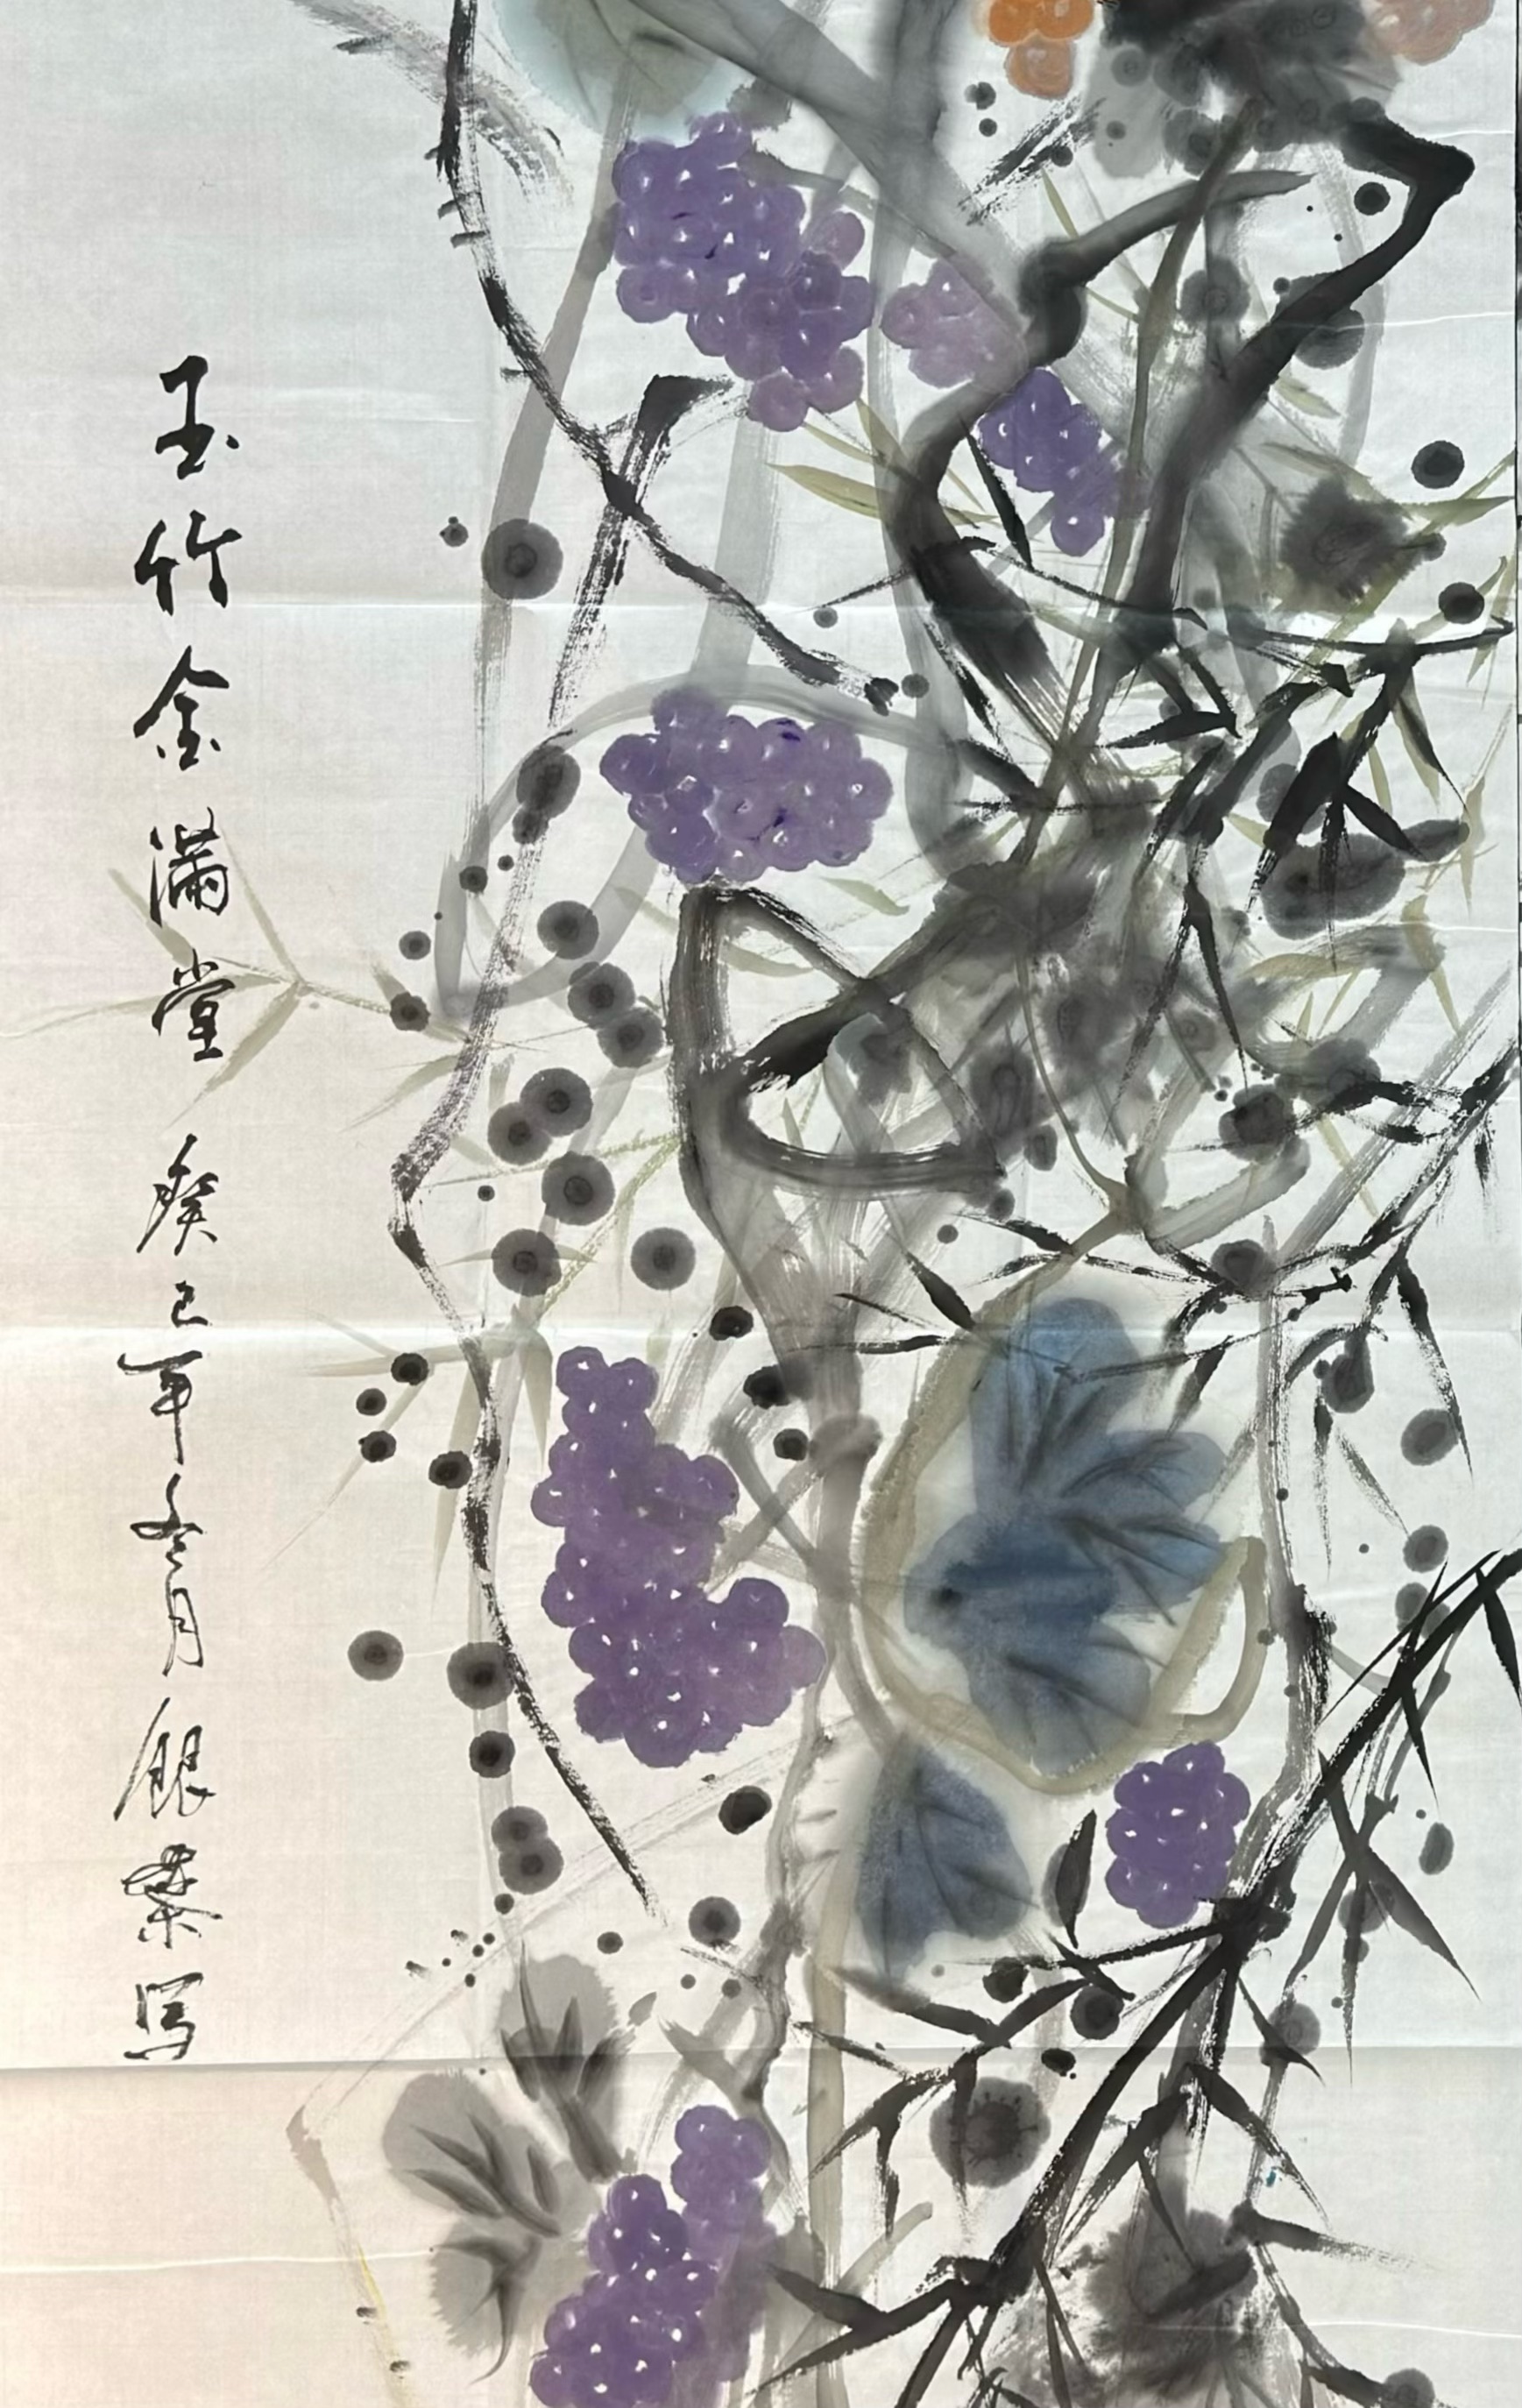 玉竹金满堂 癸巳年冬月银業写